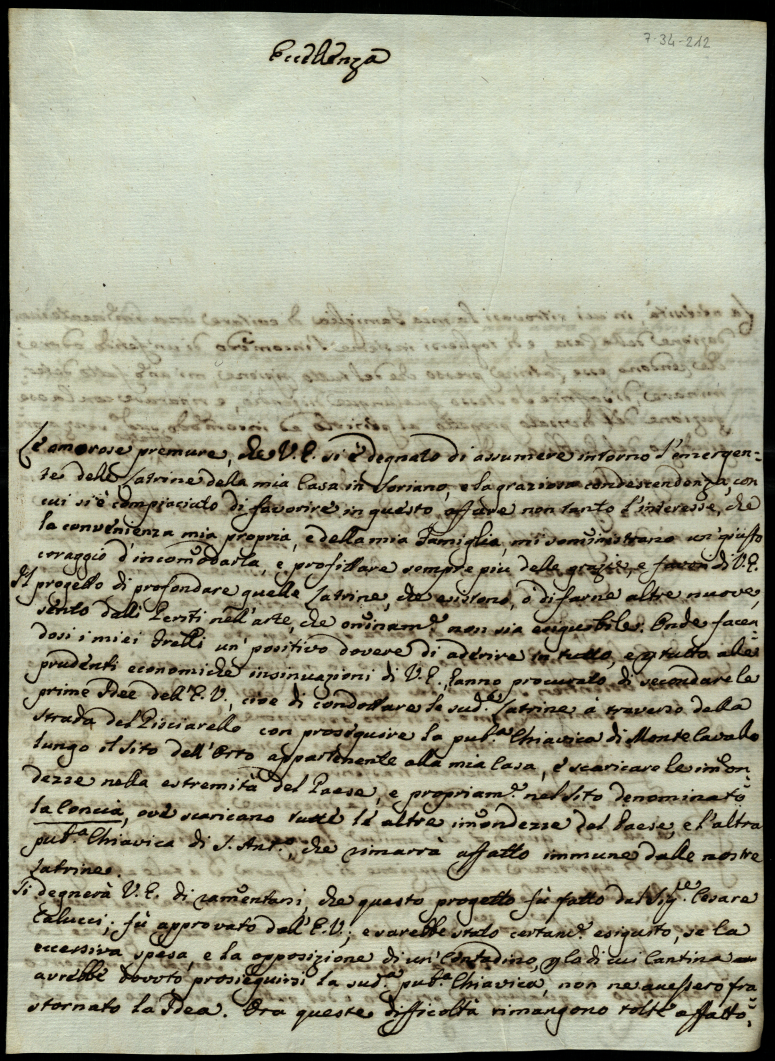 7-34-212
Eccellenza
Le amorose premure, che V. E. si è degnato di assumere intorno l'emergen=
te delle Latrine della mia Casa in Soriano, e la graziosa condescendenza, con
cui si è compiaciuto di favorire in questo affare non tanto l'interesse, che
la convenienza mia propria, e della mia Famiglia, mi somministrano un giusto
coraggio d'incomodarla, e profittare sempre più delle grazie, e favori di V. E.
Il progetto di profondare quelle Latrine, che esistono, ò di farne altre nuove,
sento dalli Periti nell'arte, che oninam.e non sia eseguibile. Onde facen=
dosi i miei Frelli un' positivo dovere di aderire in tutto, e p tutto alle
prudenti economiche insinuazioni di V. E., hanno procurato di secondare le
prime Idee dell'E. V., cioè di condottare le sud.e Latrine à traverso della
strada del Pisciarello con proseguire la pub.a Chiavica di Monte Cavallo
lungo il sito dell'Orto appartenente alla mia Casa, e scaricare le imon=
dezze nella estremità del Paese, e propriam.e nel sito denominato
la Concia, ove scaricano tutte le altre imondezze del Paese, e l'altra
pub.a Chiavica di S. Ant.o, che rimarrà affatto immune dalle nostre
Latrine.
Si degnerà V. E. di ramentarsi, che questo progetto fù fatto dal Sig.re Cesare
Calucci; fù approvato dall'E. V.; e sarebbe stato certam.e eseguito, se la
eccessiva spesa, e la opposizione di un' Contadino, p la di cui Cantina
avrebbe dovuto proseguirsi la sud.a pub.a Chiavica, non ne avessero fra
stornato la Idea. Ora queste difficoltà rimangono tolte affatto;